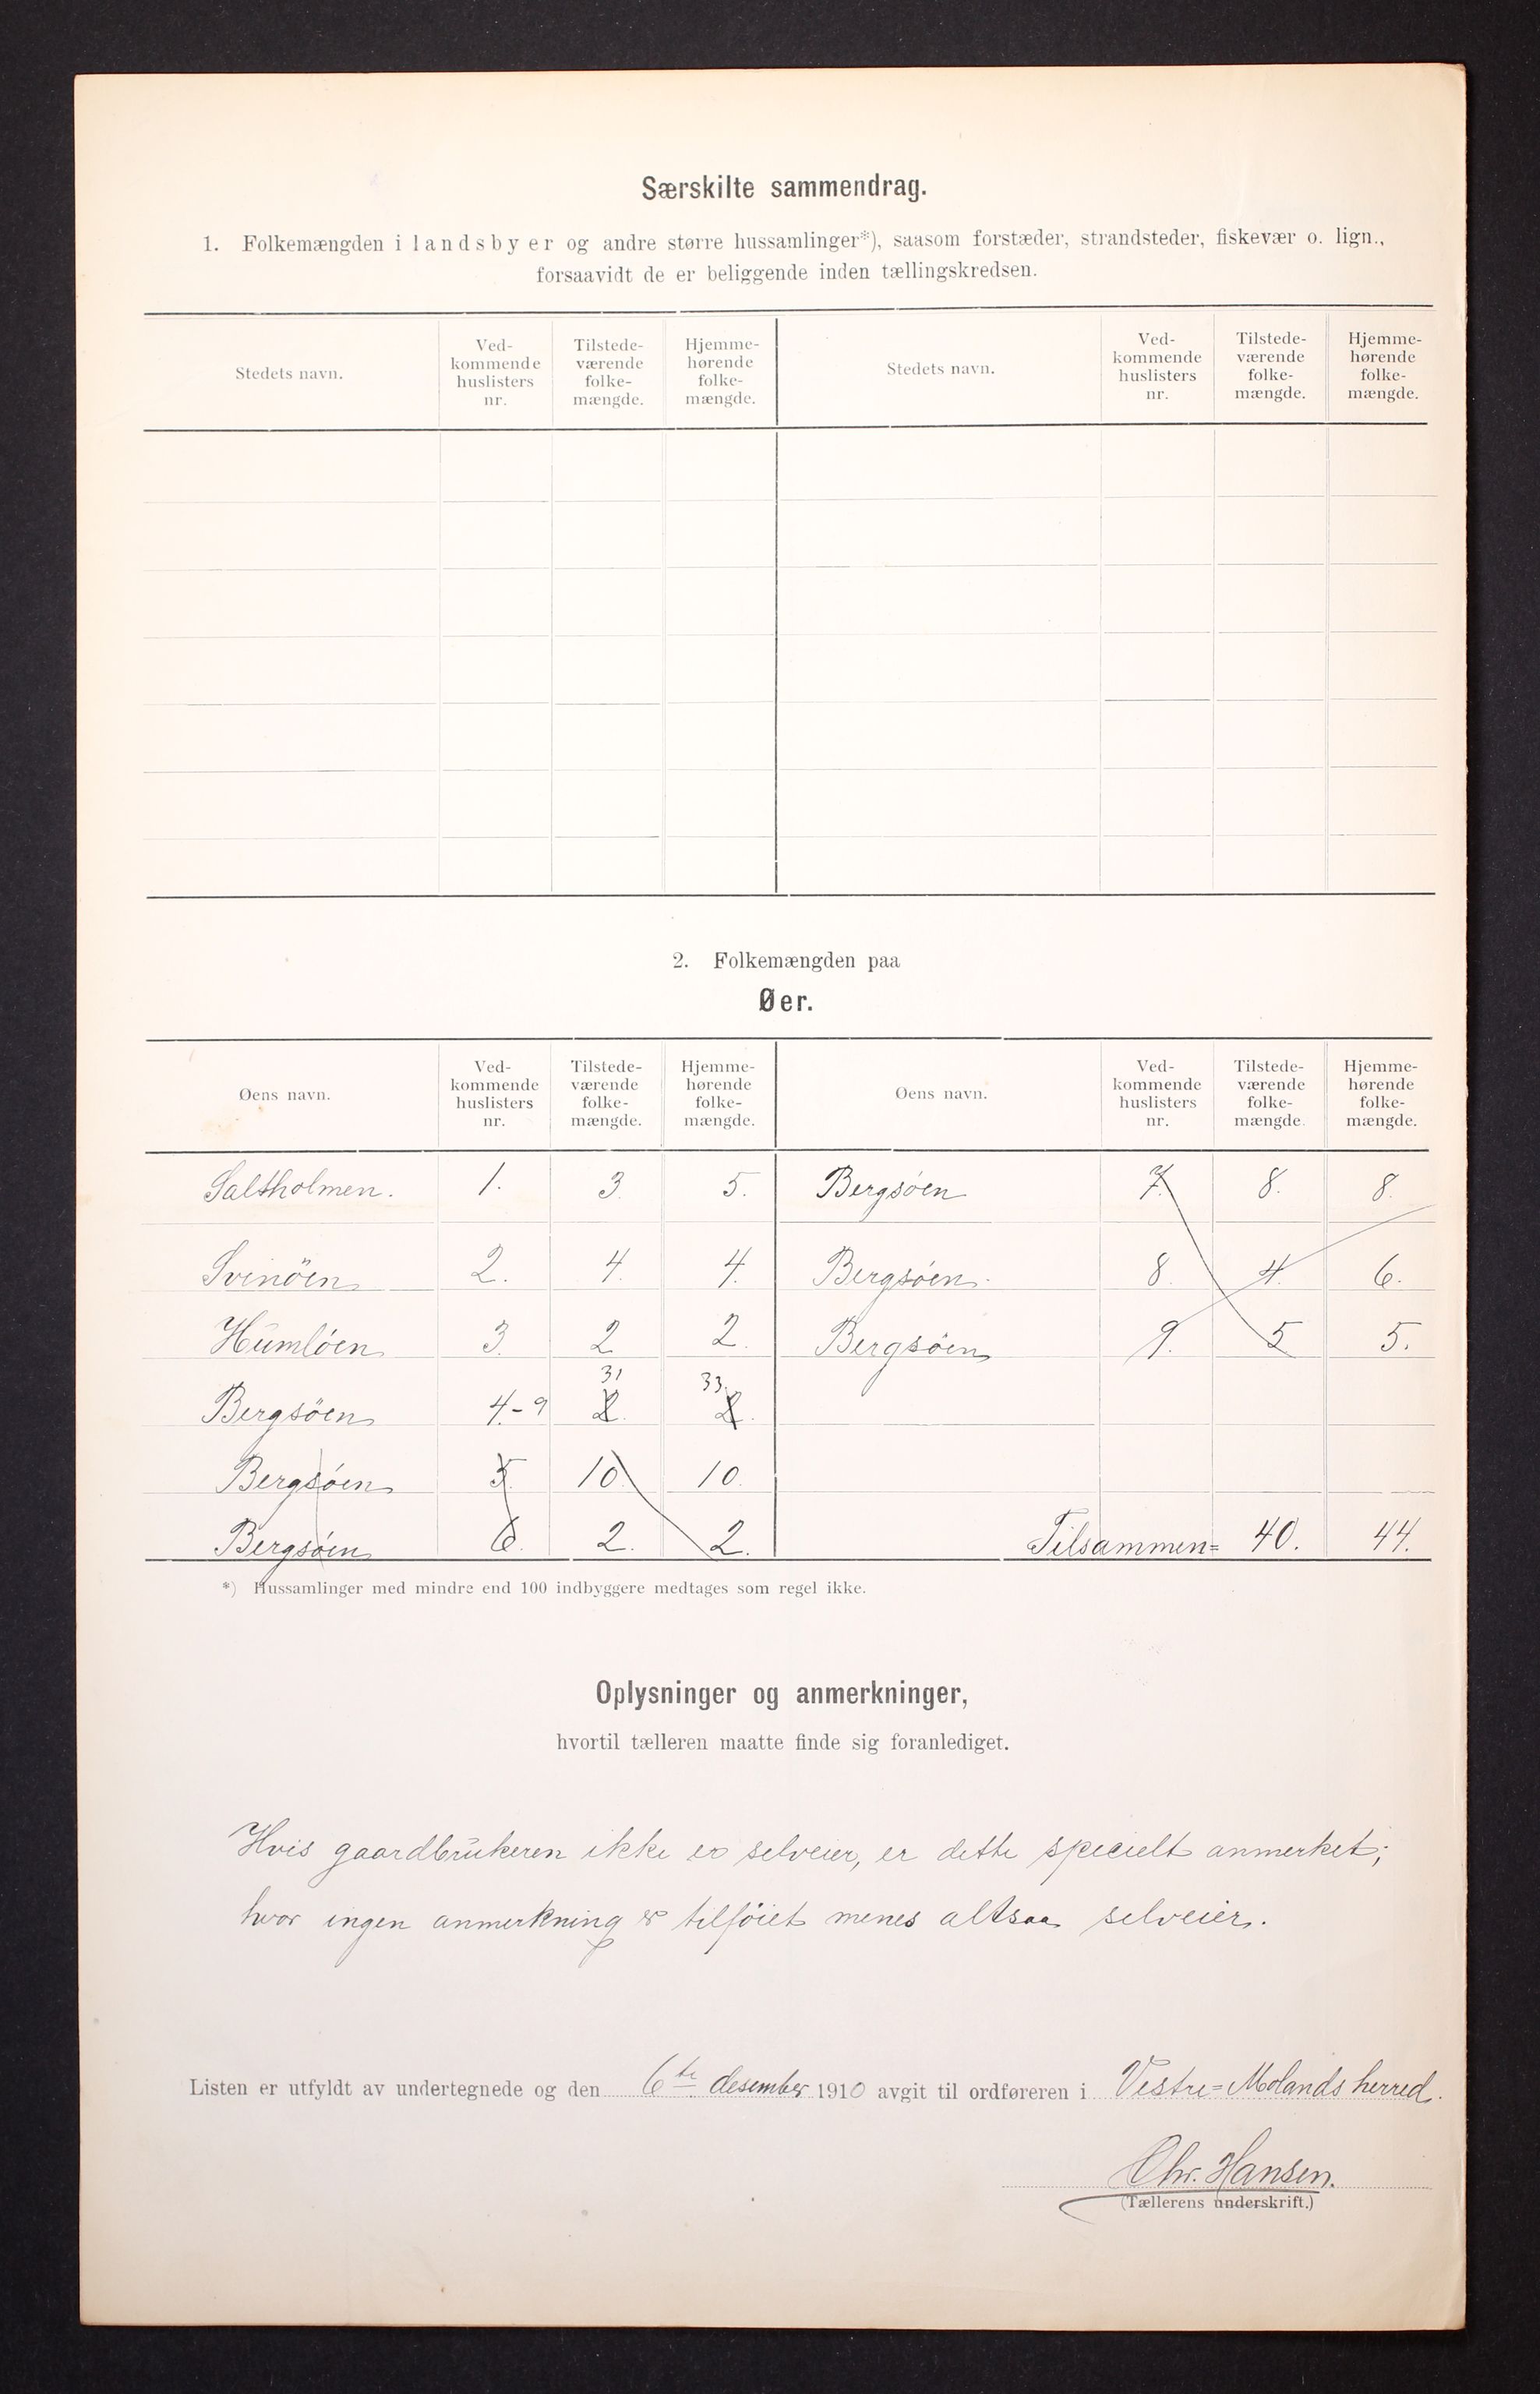 Særskilte sammendrag.
1. Folkemængden i landsbyer og andre større hussamlinger*), saasom forstæder, strandsteder, fiskevær o. lign.,
forsaavidt de er beliggende inden tællingskredsen.
Stedets navn. Ved-kommende huslisters nr. Tilstede-værende folke-mængde. Hjemme-hørende folke-mængde. Stedets navn. Ved-kommende huslisters nr. Tilstede-værende folke-mængde. Hjemme-hørende folke-mængde.
2. Folkemængden paa
Øer.
Øens navn. Ved-kommende huslisters nr. Tilstede-værende folke-mængde. Hjemme-hørende folke-mængde. Øens navn. Ved-kommende huslisters nr. Tilstede-værende folke-mængde. Hjemme-hørende folke-mængde.
Saltholmen. 1. 3. 5. Bergsöen 7. 8. 8.
Svinöen 2. 4. 4. Bergsöen. 8. 4. 6.
Humlöen 3. 2 2. Bergsöen 9. 5 5.
31 33.
Bergsöen 4.-9 2. 2.
Bergsöen 5 10 10.
Bergsöen 6. 2. 2. Tilsammen= 40. 44.
*) Hussamlinger med mindre end 100 indbyggere medtages som regel ikke.
Oplysninger og anmerkninger,
hvortil tælleren maatte finde sig foranlediget.
Hvis gaardbrukeren ikke er selveier, er dette specielt anmerket;
hvor ingen anmerkning er tilföiet menes altsaa selveier.
Listen er utfyldt av undertegnede og den 6te desember 1910 avgit til ordføreren i Vestre=Molands herred.
Chr. Hansen.
(Tællerens underskrift.)